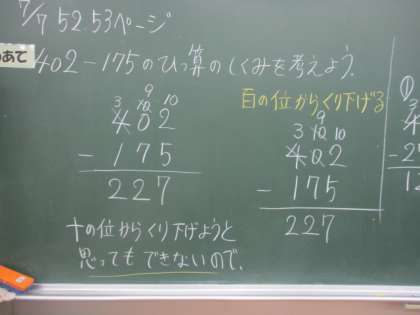 7/7 52.53ページ
めあて
402-175のひっ算のしくみを考えよう.
9
3 10 10
402
- 175
227
十の位からくり下げようと
思ってもできないので.
百の位からくり下げる
9
3 10 10
402
- 175
227
①